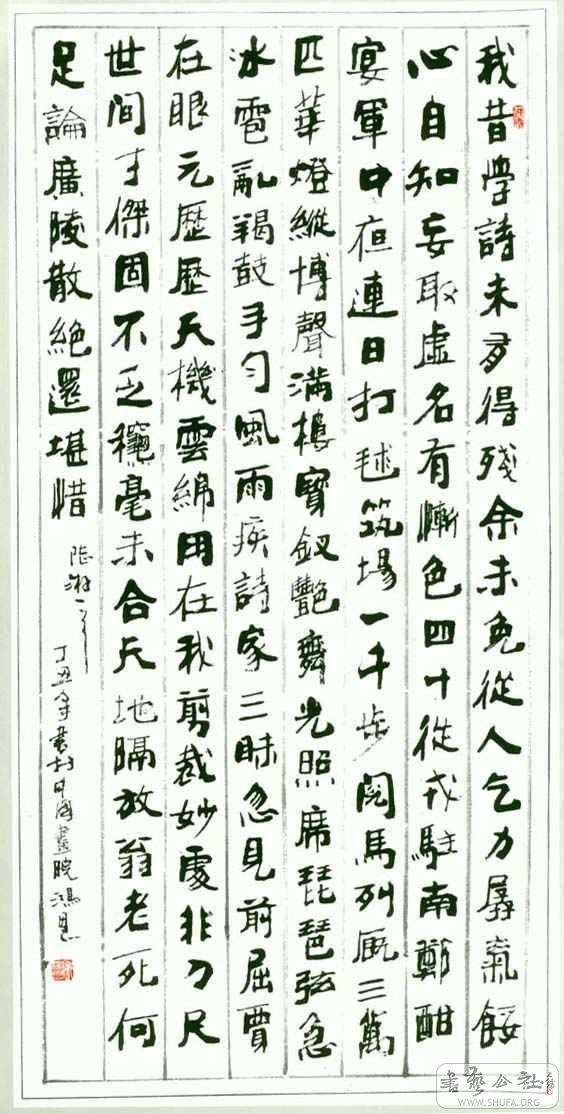 我昔學詩未有得残余未免從人乞力孱氣餒
心自知妄取虚名有慚色四十從戎駐南鄭酣
宴軍中夜連日打毬筑場一千步閲馬列厩三萬
匹華燈縱博聲滿樓寶釵艷舞光照席琵琶弦急
冰雹亂羯鼓手匀風雨疾詩家三昧忽見前屈賈
在眼元歷歷天機雲綿用在我剪裁妙處非刀尺
世間才傑固不乏穐毫未合天地隔放翁老死何
足論廣陵散絶還堪惜
陸游
丁丑年書於中國畫院
書藝公社
WWW.SHUFA.ORG